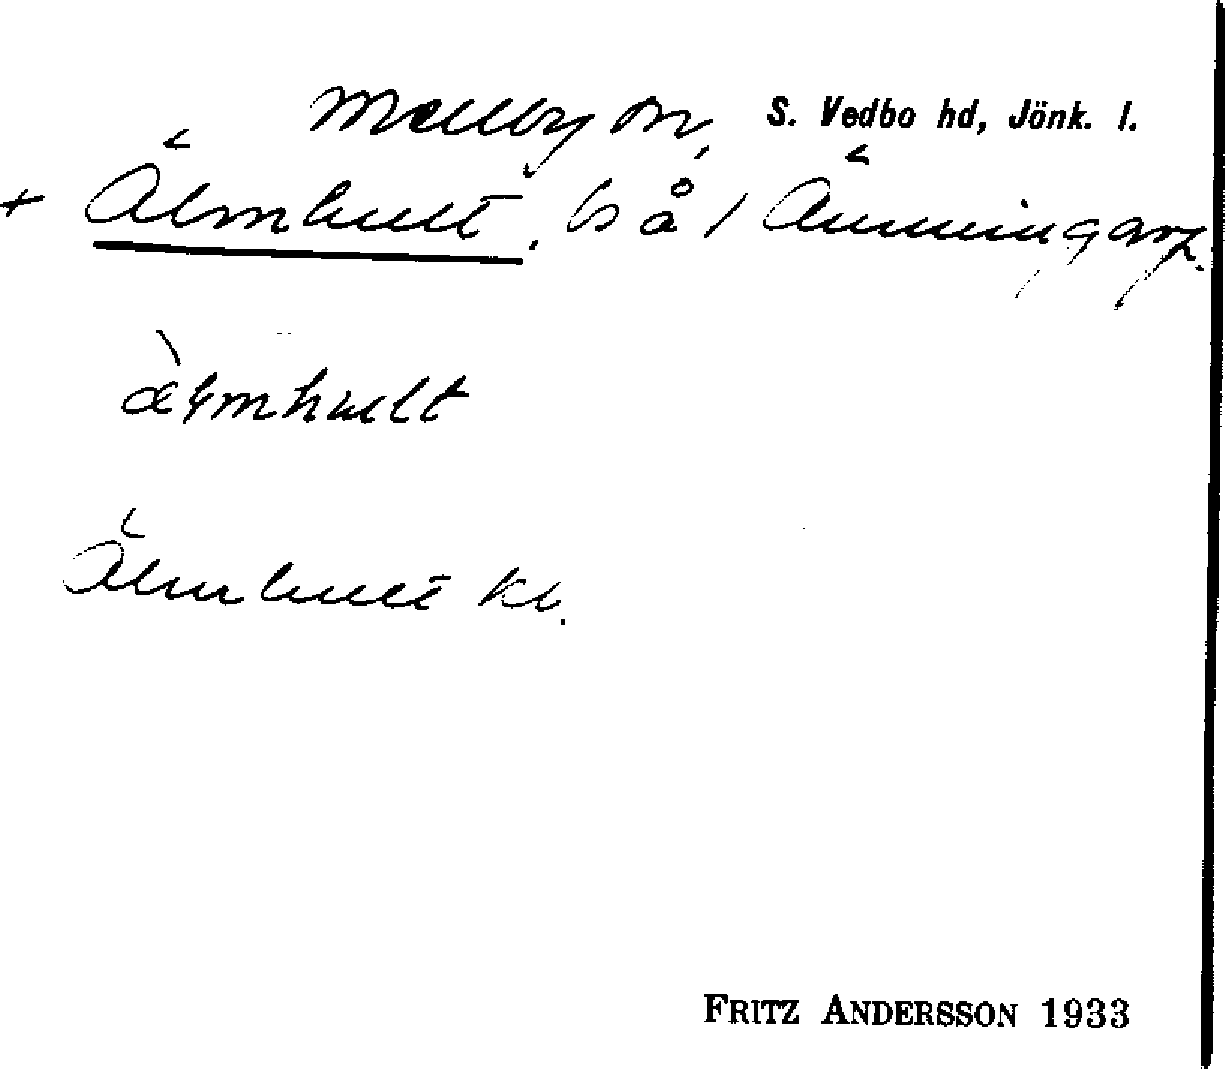 Mellby sn, S. Vedbo hd, Jönk. l.
+ Älmhult, bs å 1 Änningarp.
älmhult
Älmhult kb.
FRITZ ANDERSSON 1933